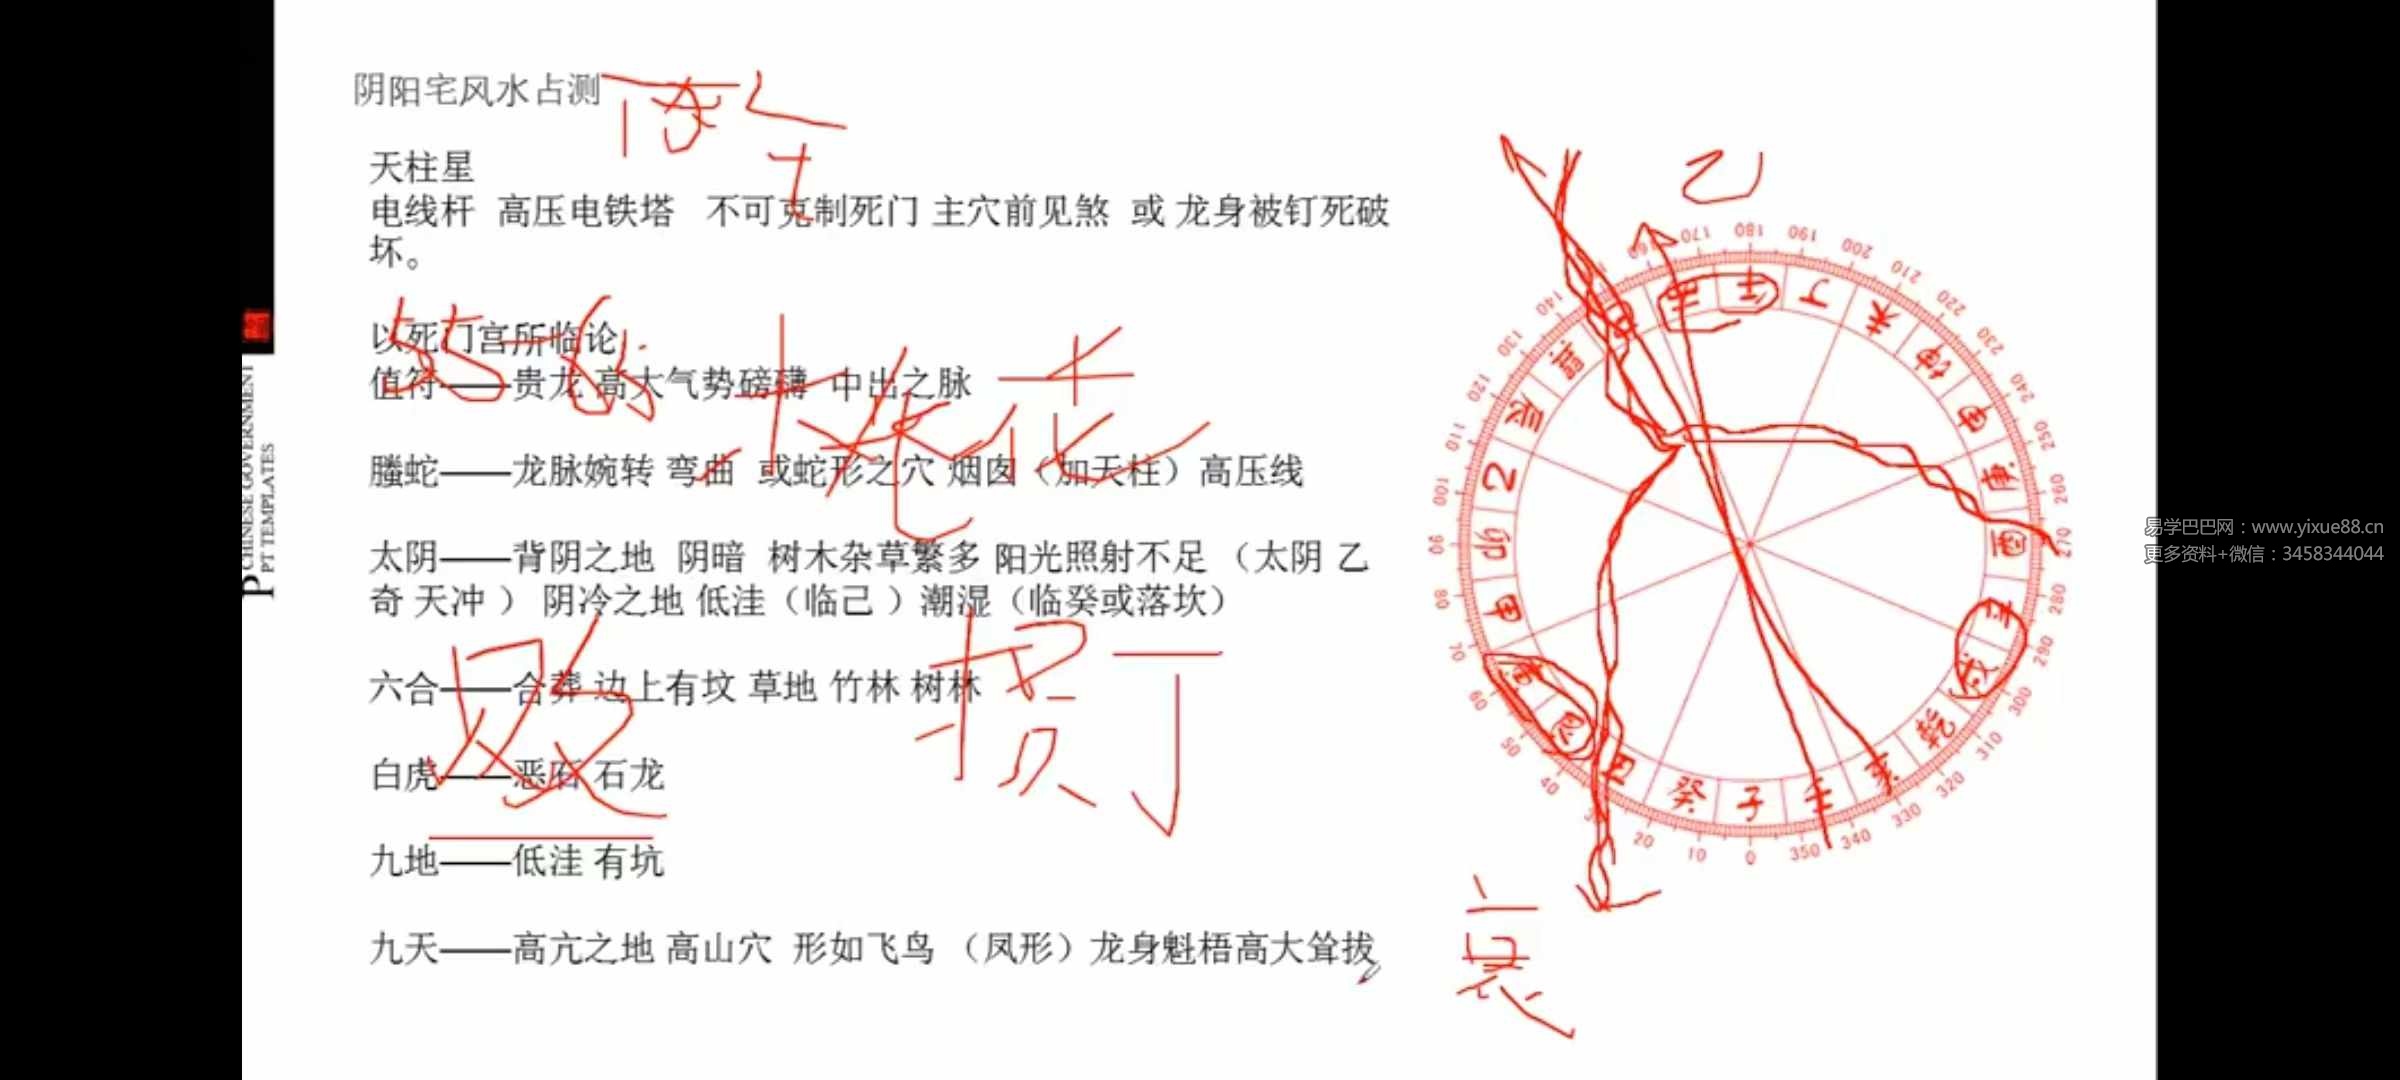 阴阳宅风水占测
天柱星
电线杆 高压电铁塔 不可克制死门 主穴前见煞 或 龙身被钉死破
坏。
以死门宫所临论
值符——贵龙 高大气势磅礴 中出之脉
螣蛇——龙脉婉转 弯曲 或蛇形之穴 烟囱（加天柱）高压线
太阴——背阴之地 阴暗 树木杂草繁多 阳光照射不足 （太阴 乙
奇 天冲 ） 阴冷之地 低洼（临己 ）潮湿（临癸或落坎）
六合——合葬 边上有坟 草地 竹林 树林
白虎——恶石 石龙
九地——低洼 有坑
九天——高亢之地 高山穴 形如飞鸟 （凤形）龙身魁梧高大耸拔
CHINESE GOVERNMENT
PPT TEMPLATES
桃花
损丁
败
衰
170 180 190 200 210 220 230 240 250 260 270 280 290 300 310 320 330 340 350 0 10 20 40 50 60 70 80 90 100 110 120 130 140
午 丁 未 坤 申 庚 酉 辛 戌 乾 亥 壬 子 癸 丑 艮 寅 甲 卯 乙 辰 巽
易学巴巴网：www.yixue88.cn
更多资料+微信：3458344044